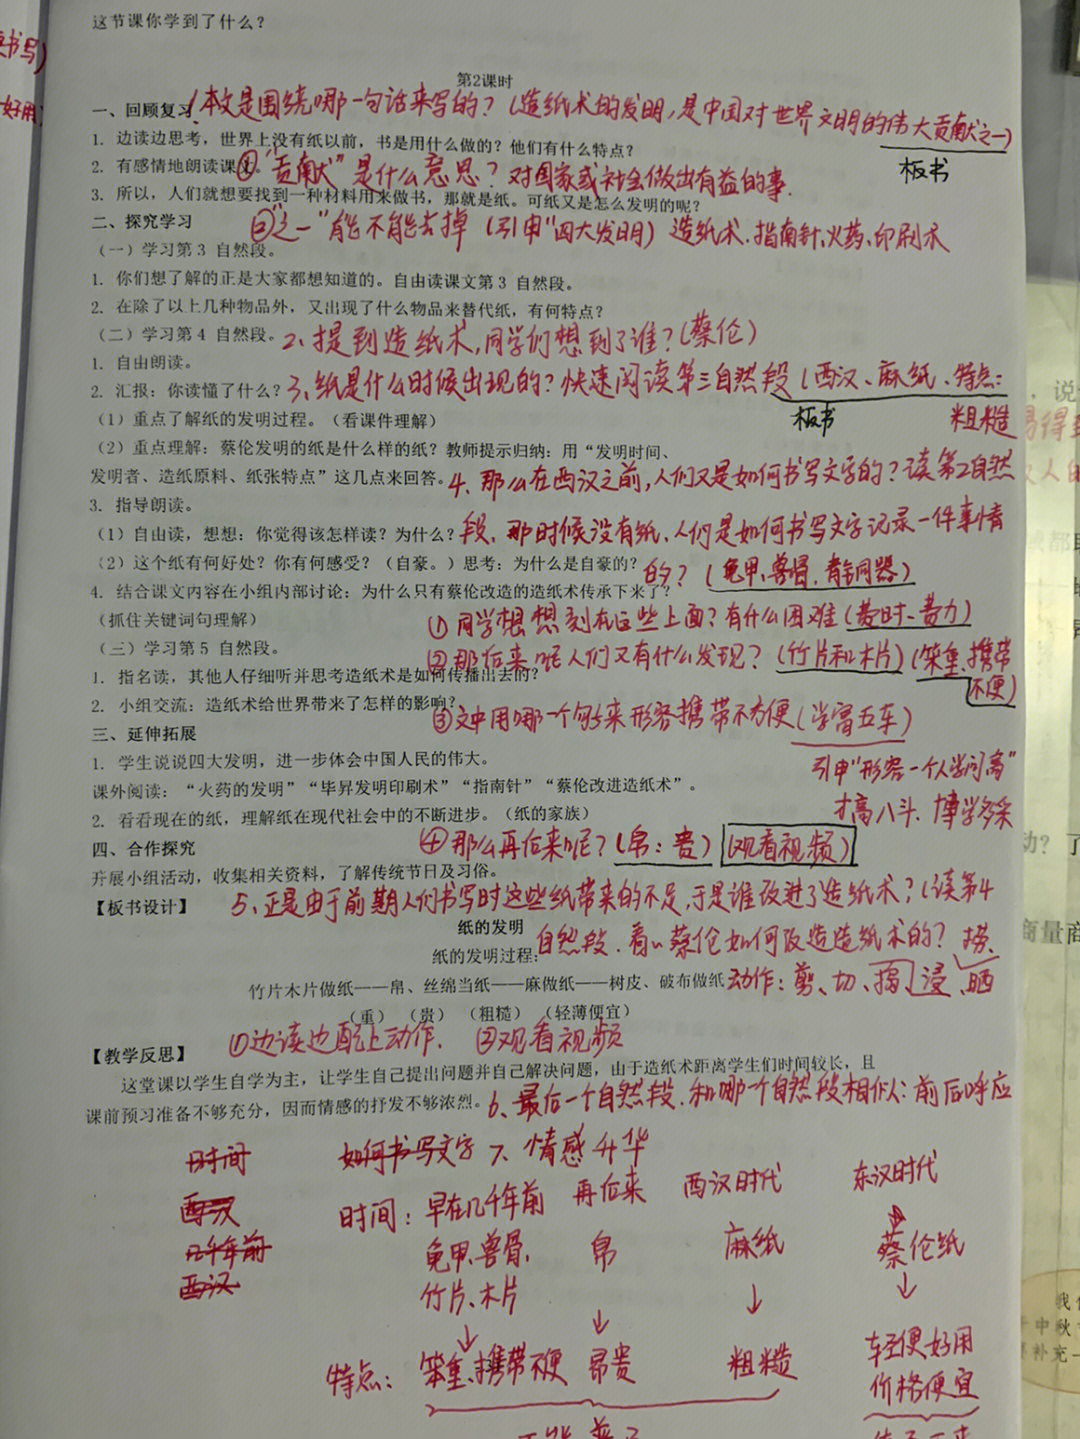 这节课你学到了什么？
第2课时
一、回顾复习 1、本文是围绕哪一句话来写的？（造纸术的发明，是中国对世界文明的伟大贡献之一）
板书
1. 边读边思考，世界上没有纸以前，书是用什么做的？他们有什么特点？
2. 有感情地朗读课文。①“贡献”是什么意思？对国家或社会做出有益的事.
3. 所以，人们就想要找到一种材料用来做书，那就是纸。可纸又是怎么发明的呢？
二、探究学习 ②“之一”能不能去掉（引申“四大发明）造纸术.指南针、火药、印刷术
（一）学习第3 自然段。
1. 你们想了解的正是大家都想知道的。自由读课文第3 自然段。
2. 在除了以上几种物品外，又出现了什么物品来替代纸，有何特点？
（二）学习第4 自然段。2、提到造纸术，同学们想到了谁？（蔡伦）
1. 自由朗读。
2. 汇报：你读懂了什么？3、纸是什么时候出现的？快速阅读第三自然段（西汉、麻纸、特点：
粗糙
板书
（1）重点了解纸的发明过程。（看课件理解）
（2）重点理解：蔡伦发明的纸是什么样的纸？教师提示归纳：用“发明时间、
发明者、造纸原料、纸张特点”这几点来回答。4、那么在西汉之前，人们又是如何书写文字的？读第2自然
3. 指导朗读。
（1）自由读，想想：你觉得该怎样读？为什么？段、那时候没有纸、人们是如何书写文字记录一件事情
（2）这个纸有何好处？你有何感受？（自豪。）思考：为什么是自豪的？的？（龟甲、兽骨、青铜器）
4. 结合课文内容在小组内部讨论：为什么只有蔡伦改造的造纸术传承下来了？
（抓住关键词句理解） ①同学想想刻在这些上面？有什么困难（费时、费力）
（三）学习第5 自然段。 ②那后来呢人们又有什么发现？（竹片和木片）（笨重、携带
不便）
1. 指名读，其他人仔细听并思考造纸术是如何传播出去的？
2. 小组交流：造纸术给世界带来了怎样的影响？③文中用哪一个句子来形容携带不方便（学富五车）
三、延伸拓展
1. 学生说说四大发明，进一步体会中国人民的伟大。 引申“形容一个人学问高”
课外阅读：“火药的发明”“毕昇发明印刷术”“指南针”“蔡伦改进造纸术”。
才高八斗、博学多采
2. 看看现在的纸，理解纸在现代社会中的不断进步。（纸的家族）
四、合作探究 ④那么再后来呢？（帛：贵）（观看视频）
开展小组活动，收集相关资料，了解传统节日及习俗。
【板书设计】 5、正是由于前期人们书写时这些纸带来的不足，于是谁改进了造纸术？（读第4
纸的发明
纸的发明过程： 自然段.看蔡伦如何改造造纸术的？捞、
竹片木片做纸——帛、丝绵当纸——麻做纸——树皮、破布做纸 动作：剪、切、捣、浸、晒
（重） （贵） （粗糙） （轻薄便宜）
【教学反思】 ①边读边配上动作. ②观看视频
这堂课以学生自学为主，让学生自己提出问题并自己解决问题，由于造纸术距离学生们时间较长，且
课前预习准备不够充分，因而情感的抒发不够浓烈。6、最后一个自然段.和哪一个自然段相似：前后呼应
时间 如何书写文字 7、情感升华
西汉 时间：早在几千年前 再后来 西汉时代 东汉时代
几千年前 龟甲、兽骨、 帛 麻纸 蔡伦纸
西汉 竹片、木片
特点：笨重、携带不便 昂贵 粗糙 轻便好用
价格便宜